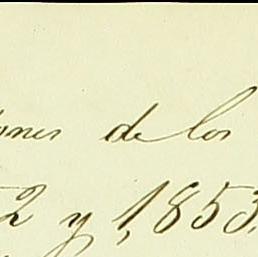 ones de los
52 y 1,853.